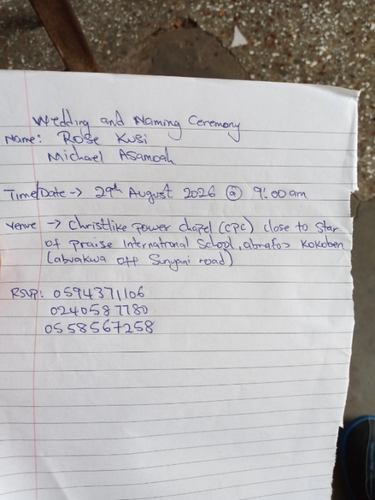 Wedding and Naming Ceremony
Name: Rose Kusi
Michael Asamoah
Time/Date -> 29th August 2026 @ 9:00am
Venue -> Christlike power chapel (CPC) close to Star
of praise International School, abrafo> Kokoben
(abuakwa off Sunyani road)
RSVP: 0594371106
0240587780
0558567258